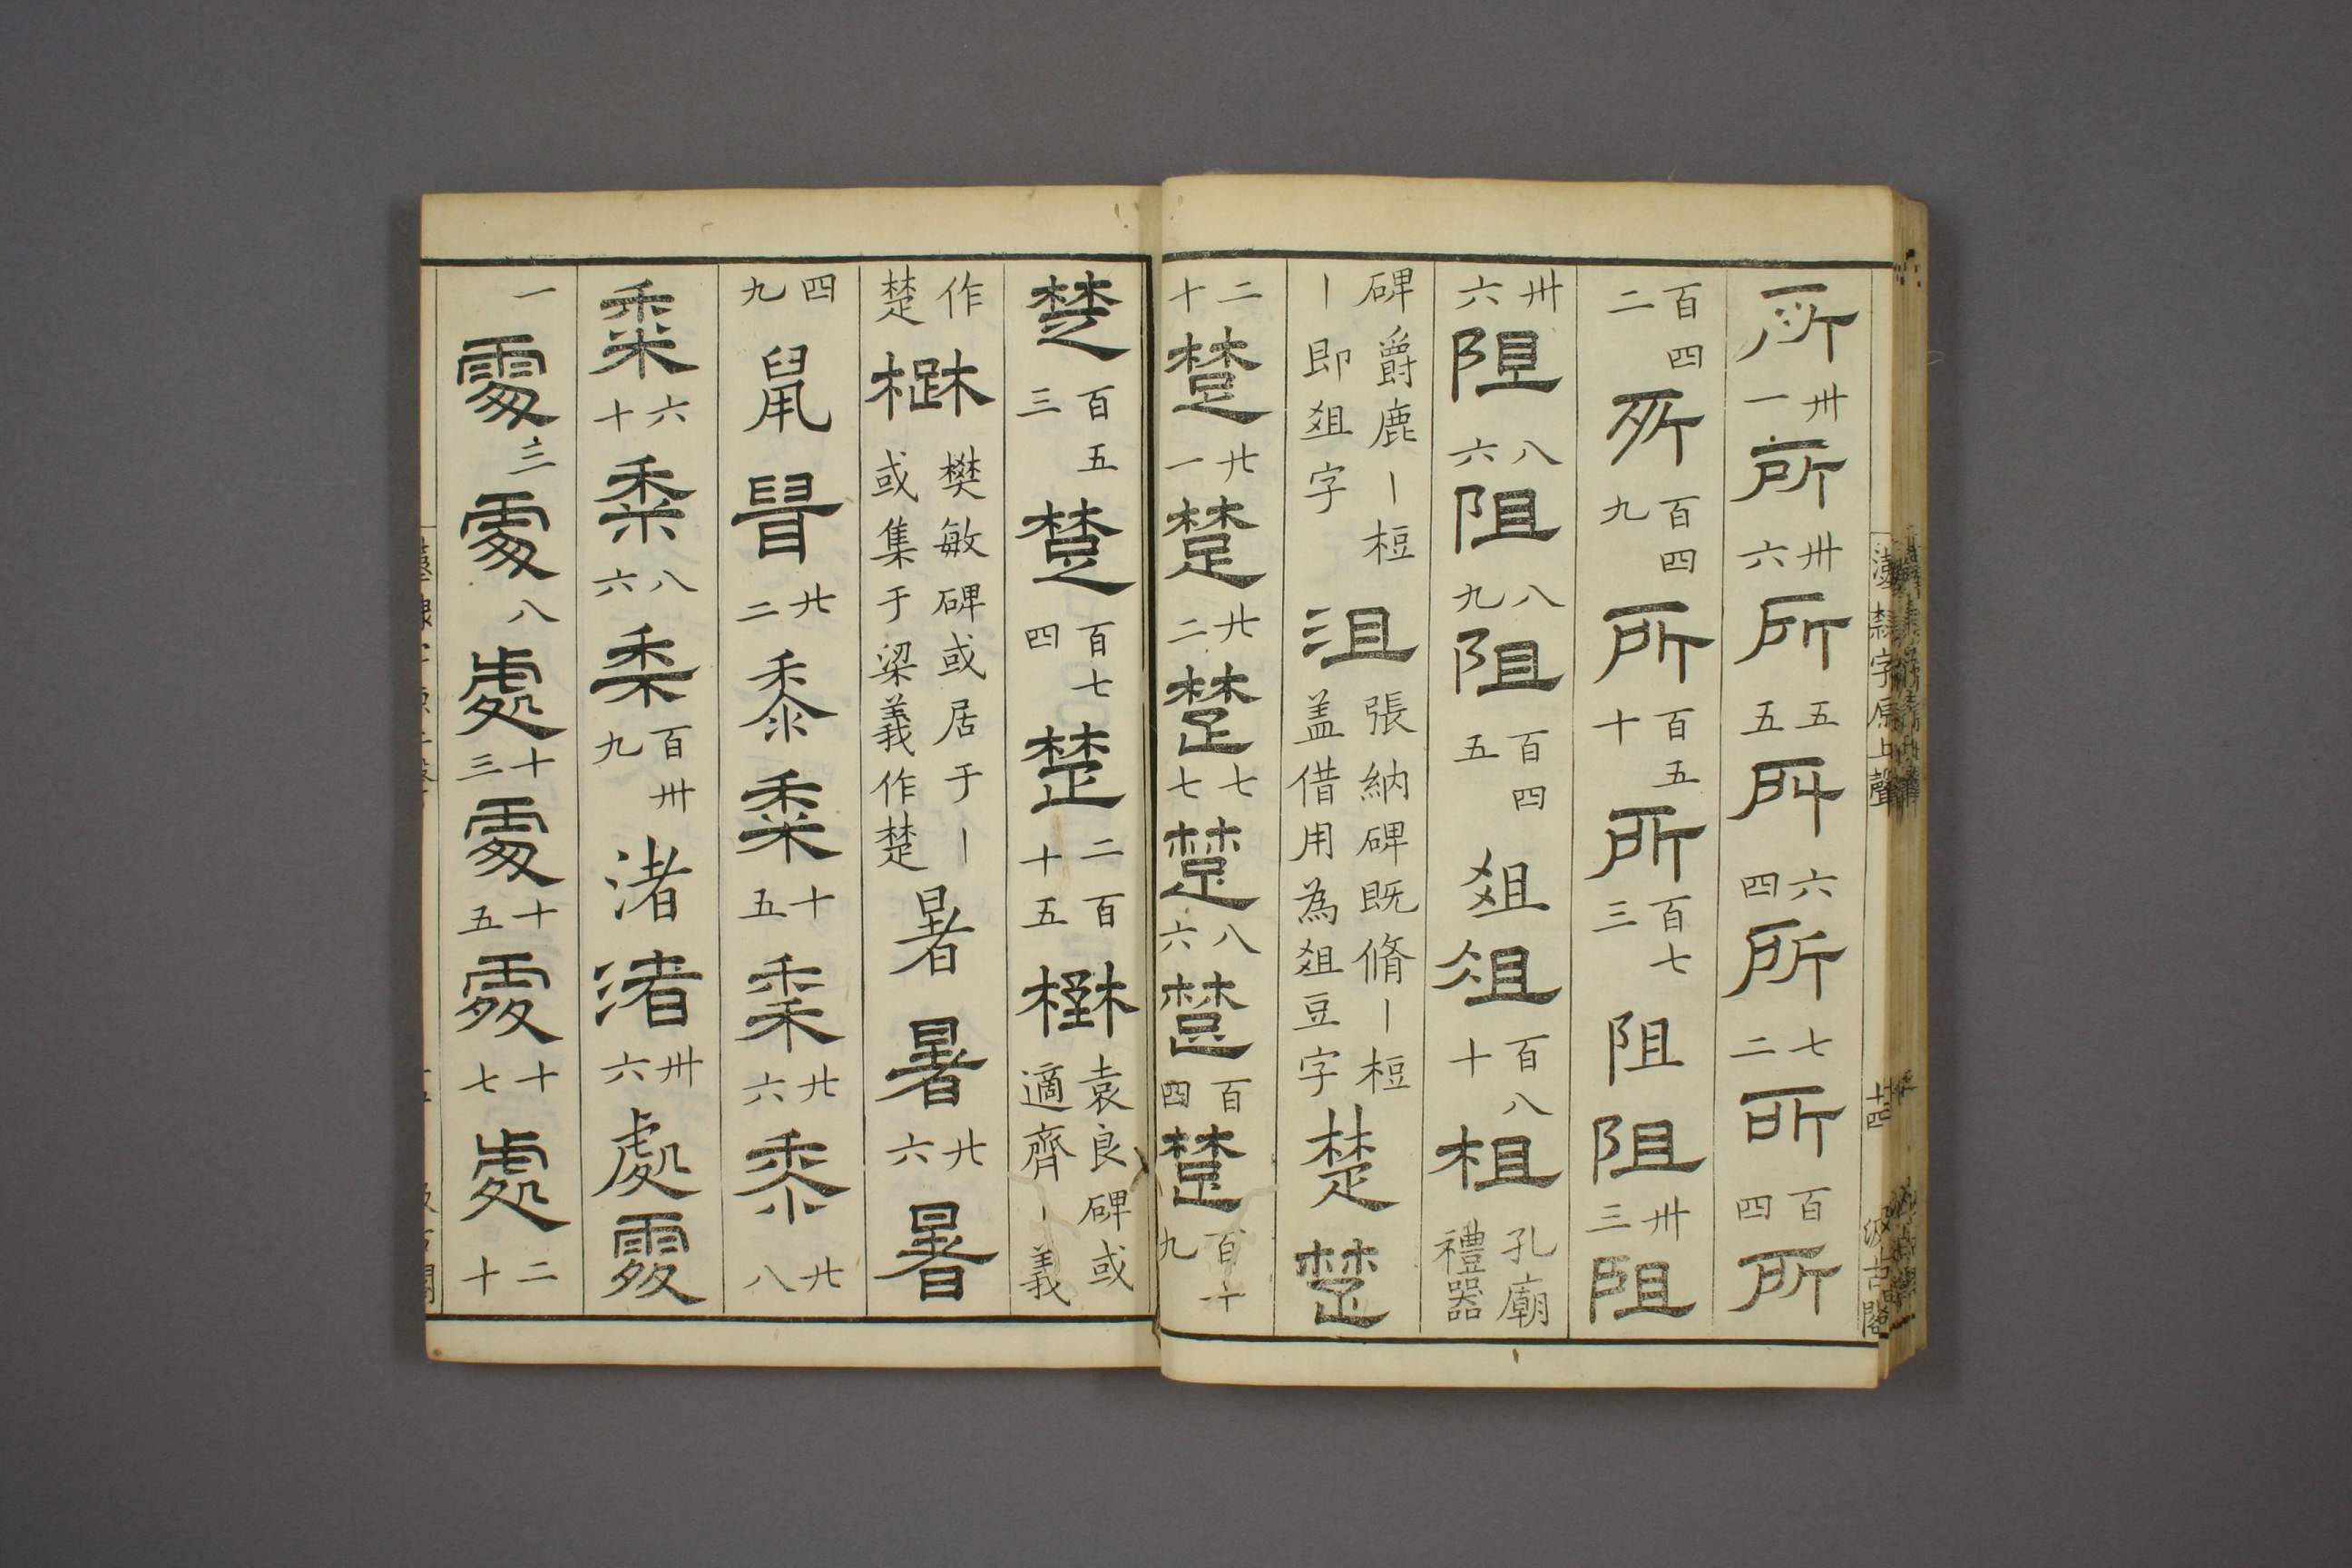 所 卅一 所 卅六 所 五五 所 六四 所 七二 所 百四 所
百四二 所 百四九 所 百五十 所 百七三 阻 阻 卅三 阻
卅六 阻 八六 阻 八九 阻 百四五 俎 俎 百八十 柤 孔廟禮器
碑爵鹿丨梪丨即俎字 沮 張納碑既脩丨梪蓋借用為俎豆字 楚 楚
二十 楚 廿一 楚 廿二 楚 七七 楚 八六 楚 百四 楚 百十九
楚 百五三 楚 百七四 楚 二百十五 檚 袁良碑或適齊丨義
作楚 檚 樊敏碑或居于丨或集于梁義作楚 暑 暑 廿六 暑
四九 鼠 鼠 廿二 黍 黍 十五 黍 廿六 黍 廿八
黍 六十 黍 八六 黍 百卅九 渚 渚 卅六 處 處
一 處 三 處 八 處 十三 處 十五 處 十七 處 二十
漢隸字原上聲
十四
汲古閣